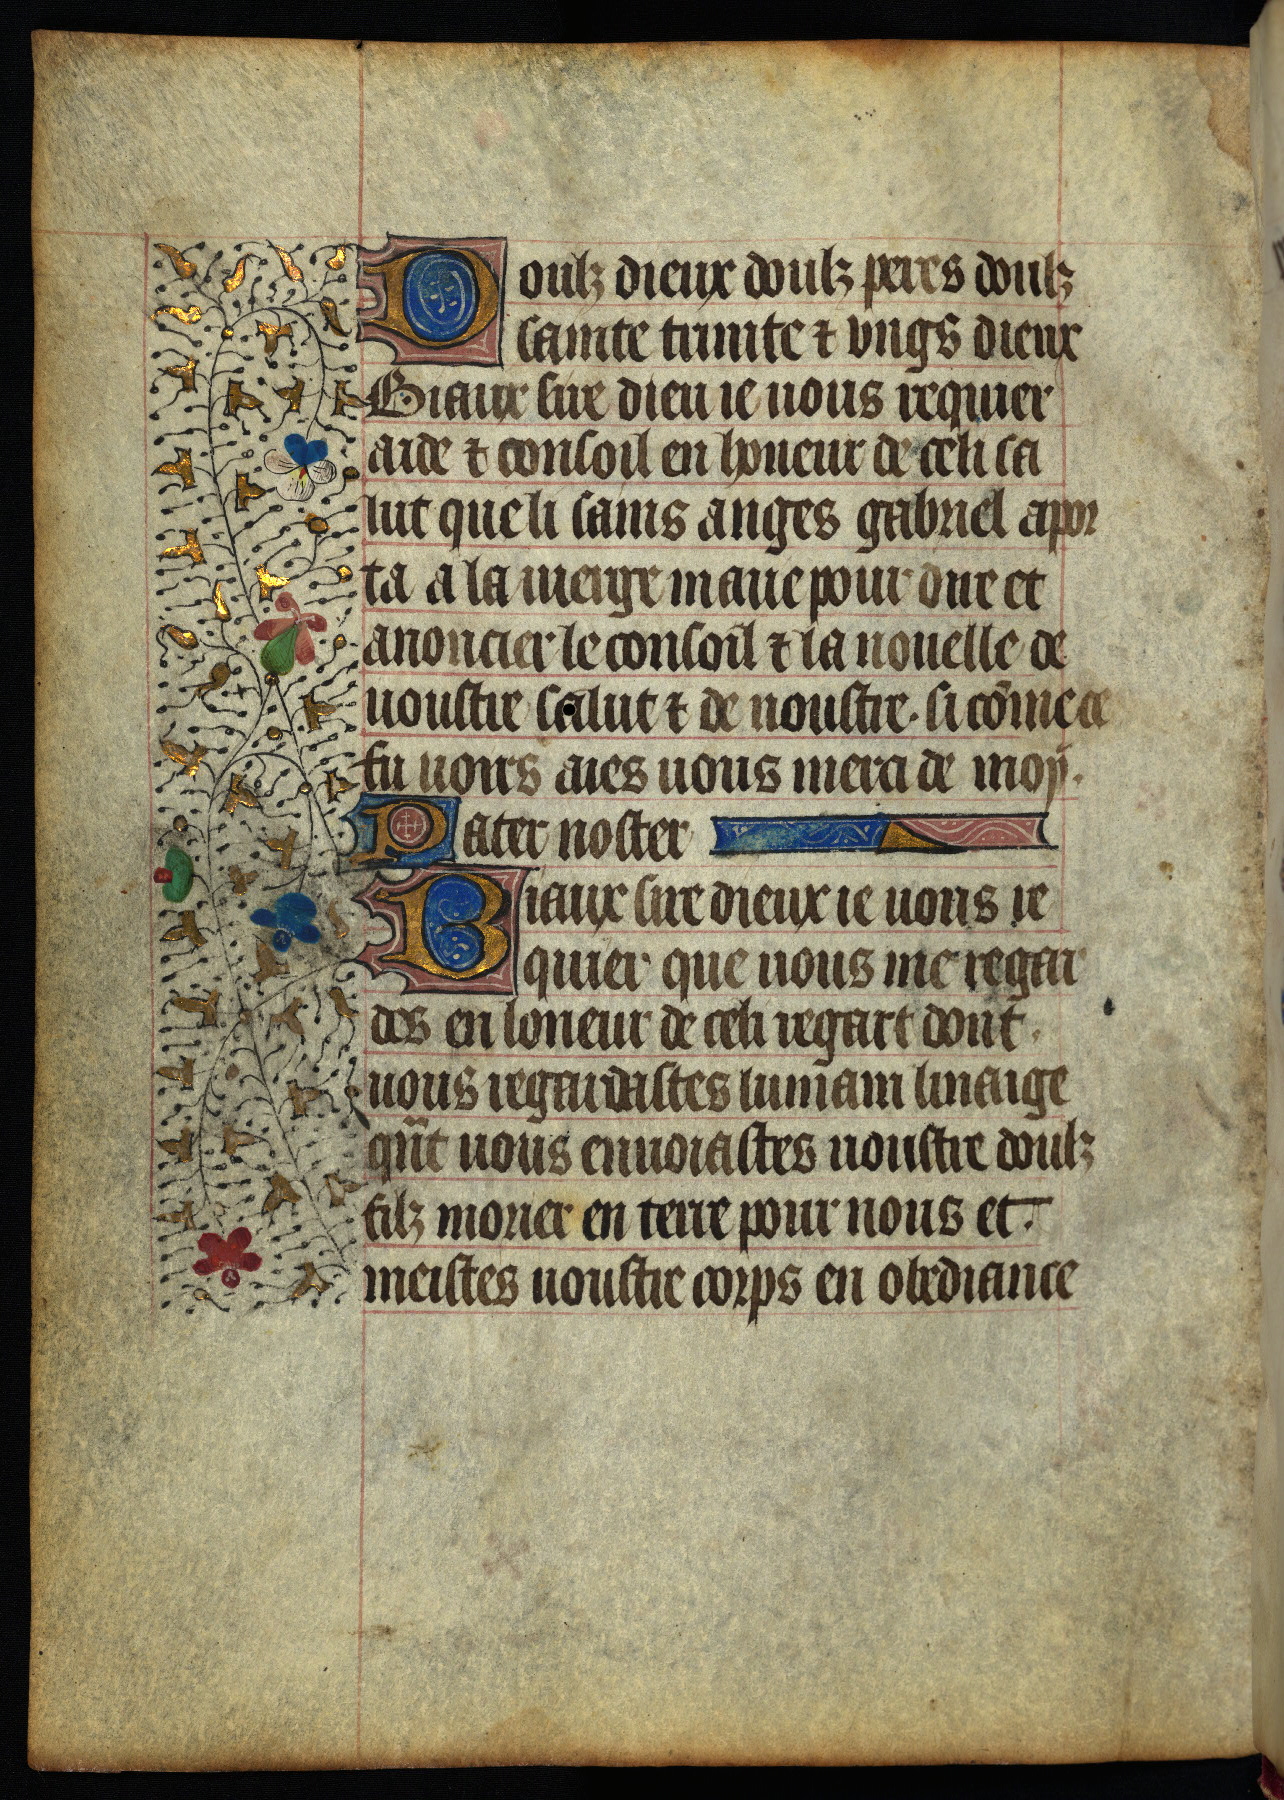 Doulz dieux doulz peres doulz
sainte trinite ⁊ vngs dieux
Biaux sire dieu ie uous requier
aide ⁊ consoil en honeur de celi sa
lut que li sains anges gabriel apor
ta a la uierge marie pour dire et
anoncier le consoil ⁊ la nouelle de
noustre salut ⁊ de noustre. si cōme ce
fu uoirs aies uous merci de moy.
Pater noster
Biaux sire dieux ie uous re
quier que uous me regar
des en loneur de celi regart dont
uous regardastes lumain linaige
qn̄t uous enuoiastes noustre doulz
filz morier en terre pour nous et
meistes uoustre corps en obediance